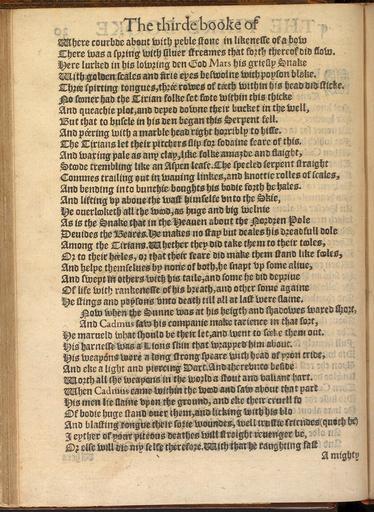 The thirde booke of
Where courbde about with peble stone in likenesse of a bow
There was a spring with siluer streames that forth thereof did flow.
Here lurked in his lowring den God Mars his griesly Snake
With golden scales and firie eyes beswolne with poyson blake.
Three spitting tongues, three rowes of teeth within his head did sticke.
No soner had the Tirian folke set fote within this thicke
And queachie plot, and deped downe their bucket in the well,
But that to buscle in his den began this Serpent fell.
And péering with a marble head right horribly to hisse.
The Tirians let their pitchers slip for sodaine feare of this.
And waxing pale as any clay, like folke amazde and flaight,
Stoode trembling like an Aspen leafe. The specled serpent straight
Commes trailing out in wauing linkes, and knottie rolles of scales,
And bending into bunchie boughts his bodie forth he hales.
And lifting vp aboue the wast himselfe vnto the Skie,
He ouerloketh all the wood, as huge and big welnie
As is the Snake that in the Heauen about the Nordren Pole
Deuides the Beares. He makes no stay but deales his dreadfull dole
Among the Tirians. Whether they did take them to their tooles,
Or to their héeles, or that their feare did make them stand like fooles,
And helpe themselues by none of both, he snapt vp some aliue,
And swept in others with his taile, and some he did depriue
Of life with rankenesse of his breath, and other some againe
He stings and poysons vnto death till all at last were slaine.
Now when the Sunne was at his heigth and shadowes wared short,
And Cadmus saw his companie make tarience in that sort,
He marueld what should be their let, and went to séeke them out.
His harnesse was a Lions skin that wrapped him about.
His weapons were a long strong speare with head of yron tride,
And eke a light and piercing Dart. And therevnto beside
Worth all the weapons in the world a stout and valiant hart.
When Cadmus came within the wood and saw about that part
His men lie slaine vpon the ground, and eke their cruell fo
Of bodie huge stand ouer them, and licking with his blo
And blasting tongue their sorie woundes, well trustie friendes (quoth he)
I eyther of your piteous deathes will streight reuenger be,
Or else will die my selfe therefore. With that he raughting fast
A mighty